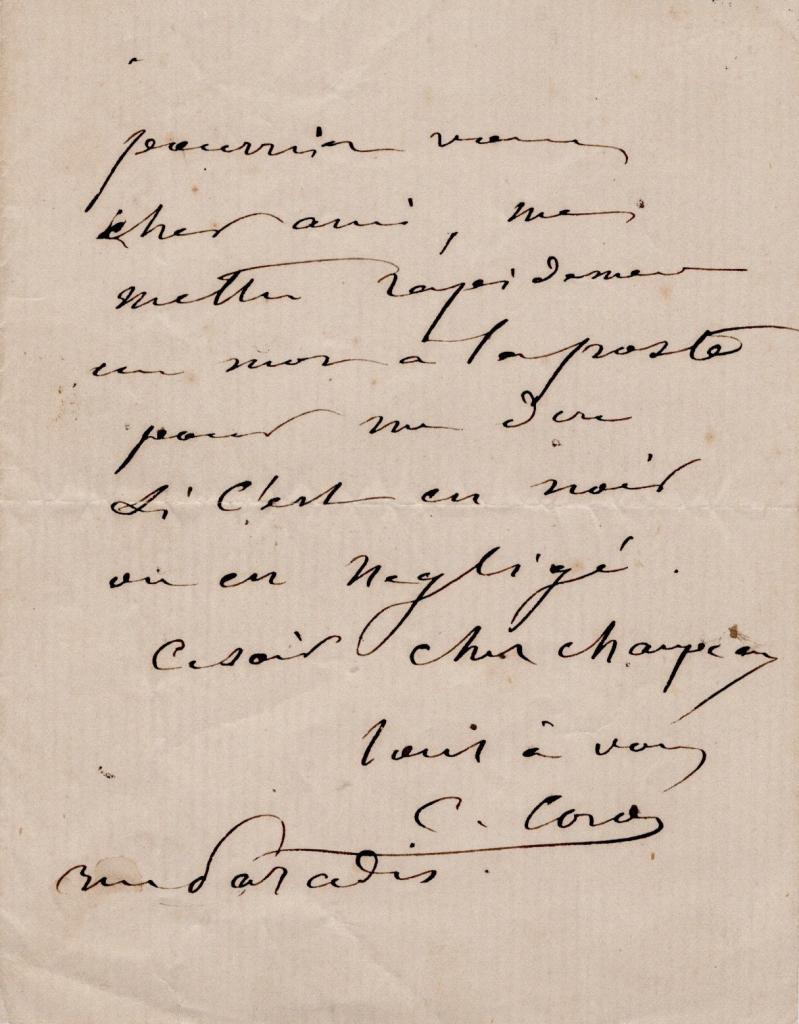 pourriez vous
cher ami, me
mettre rapidement
un mot a la poste
pour me dire
si c'est en noir
ou en negligé.
Ce soir cher
tout à vous
C. Corot
rue Paradis.